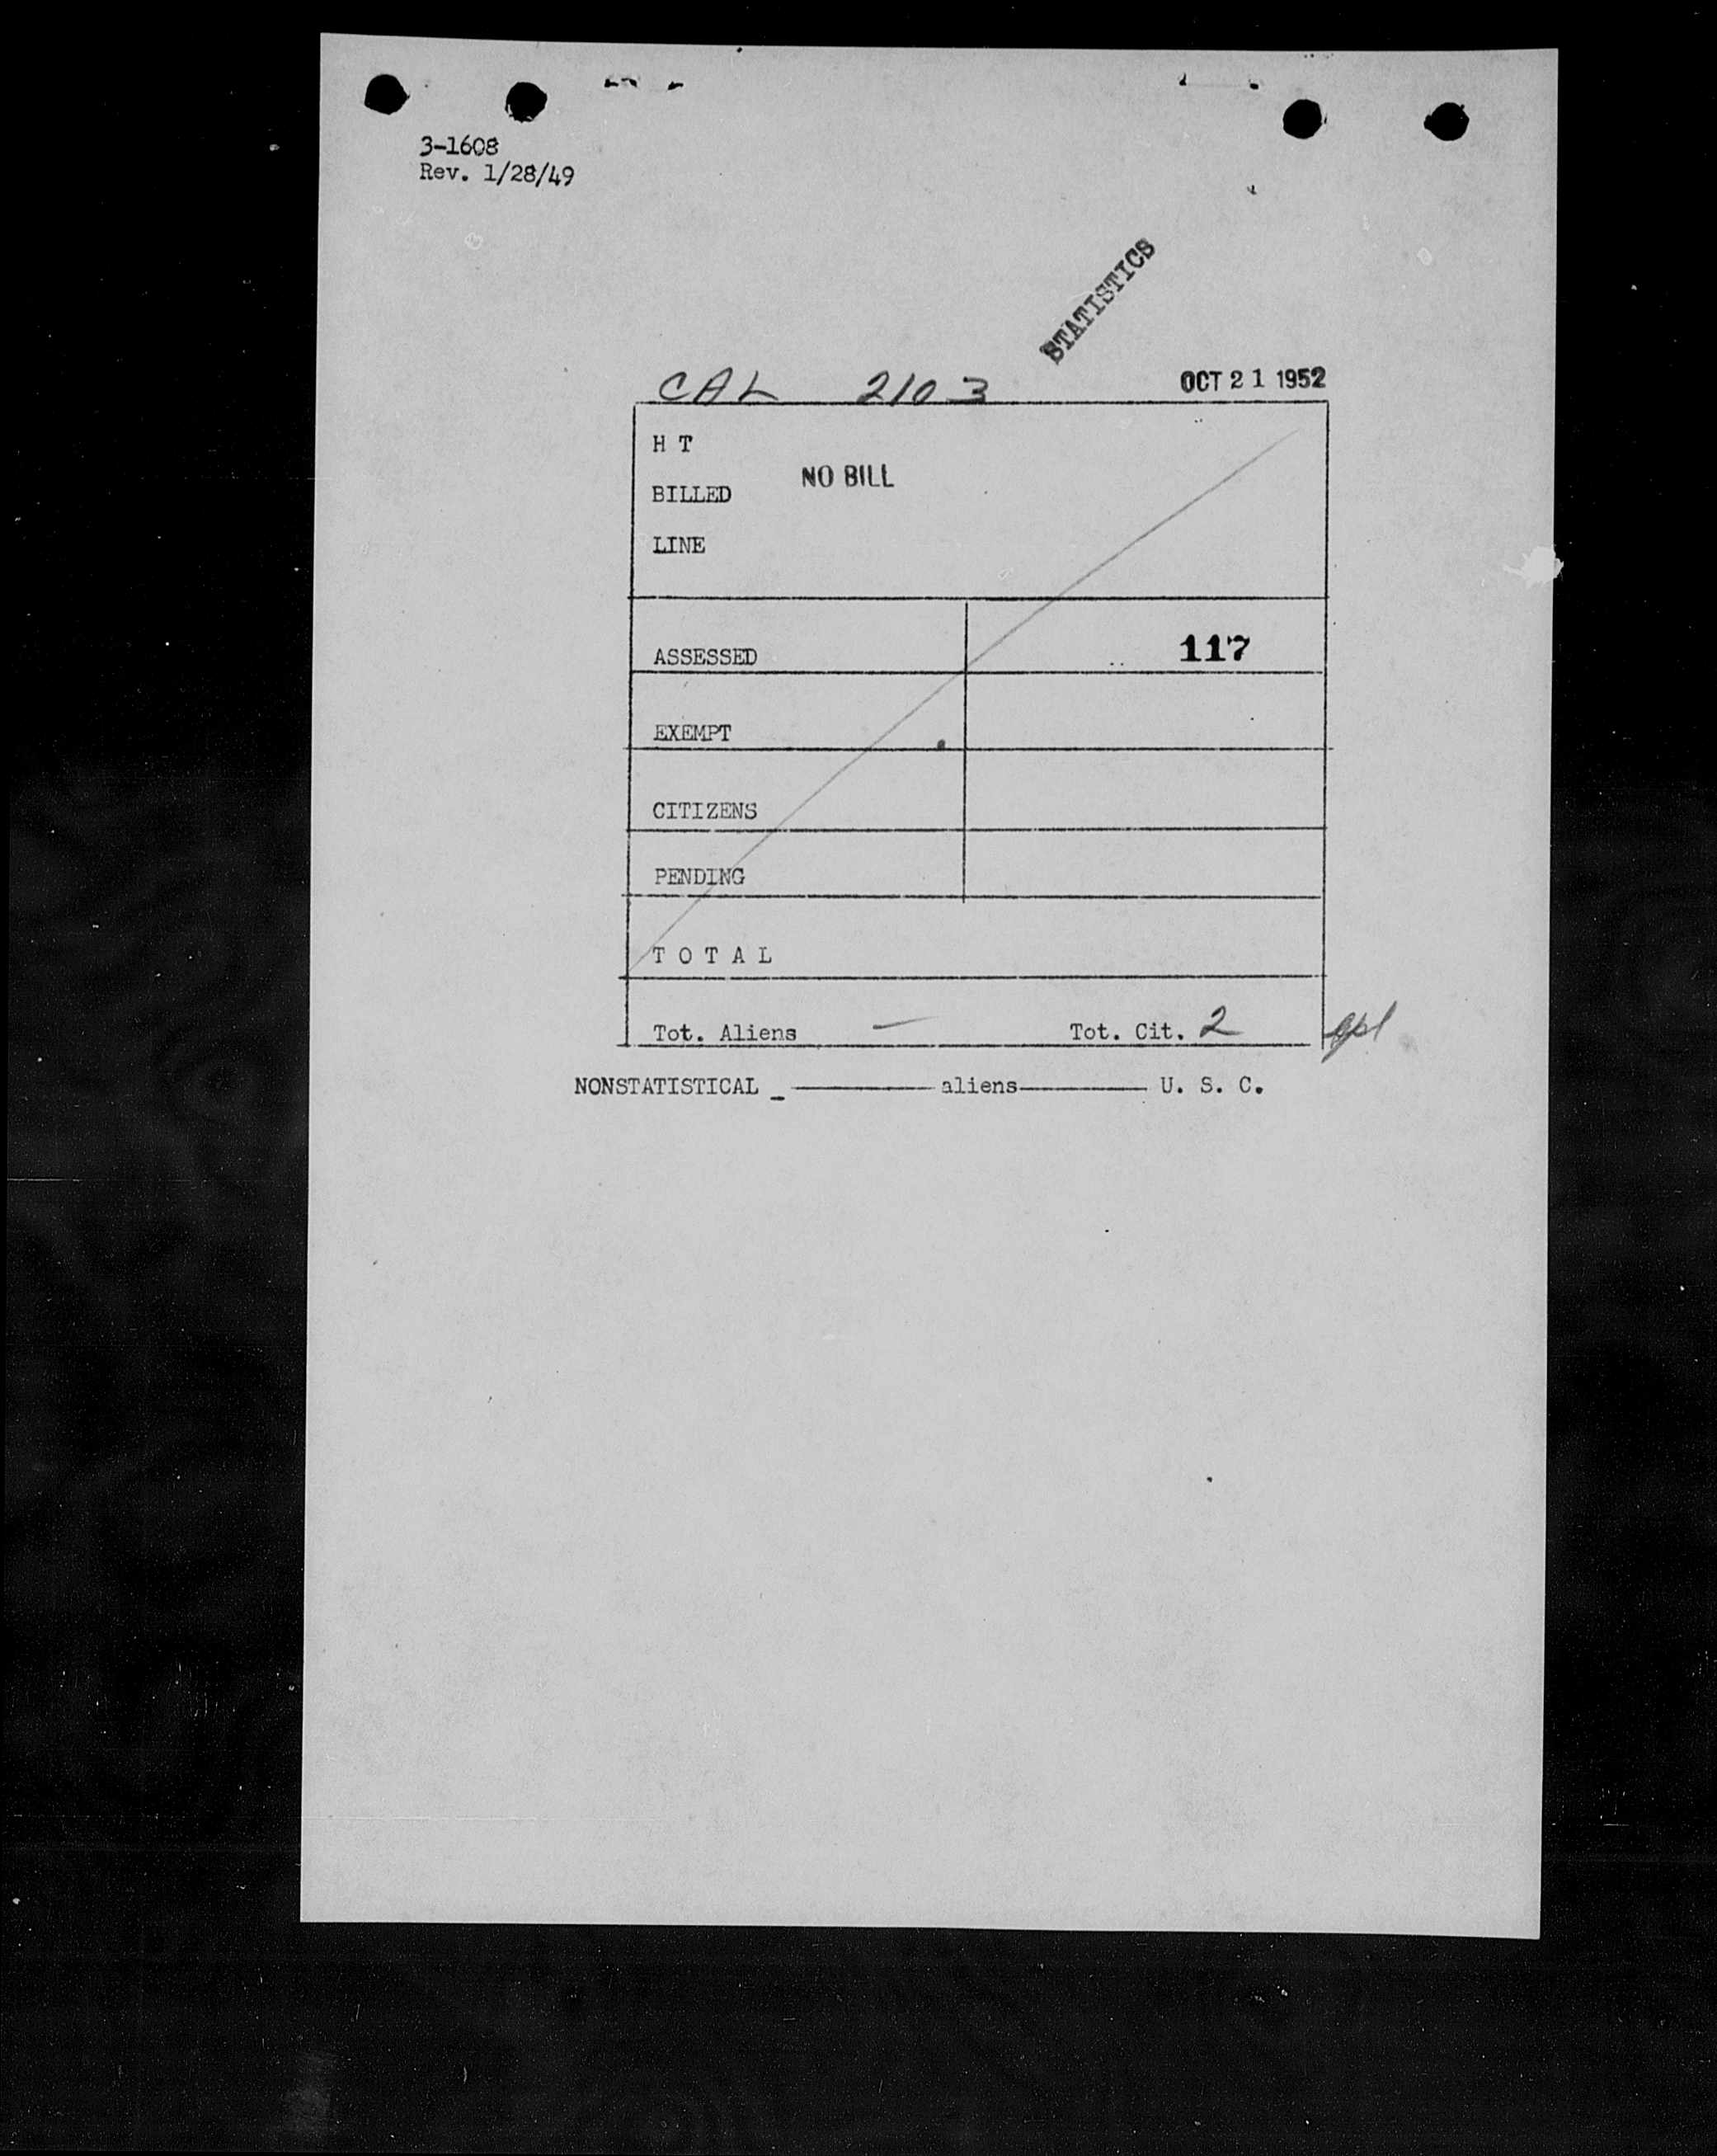 3-1608
Rev. 1/28/49
STATISTICS
CAL 2103 OCT 21 1952
H T
NO BILL
BILLED
LINE
ASSESSED 117
EXEMPT
CITIZENS
PENDING
T O T A L
Tot. Aliens — Tot. Cit. 2
NONSTATISTICAL _ ———— aliens ———— U. S. C.